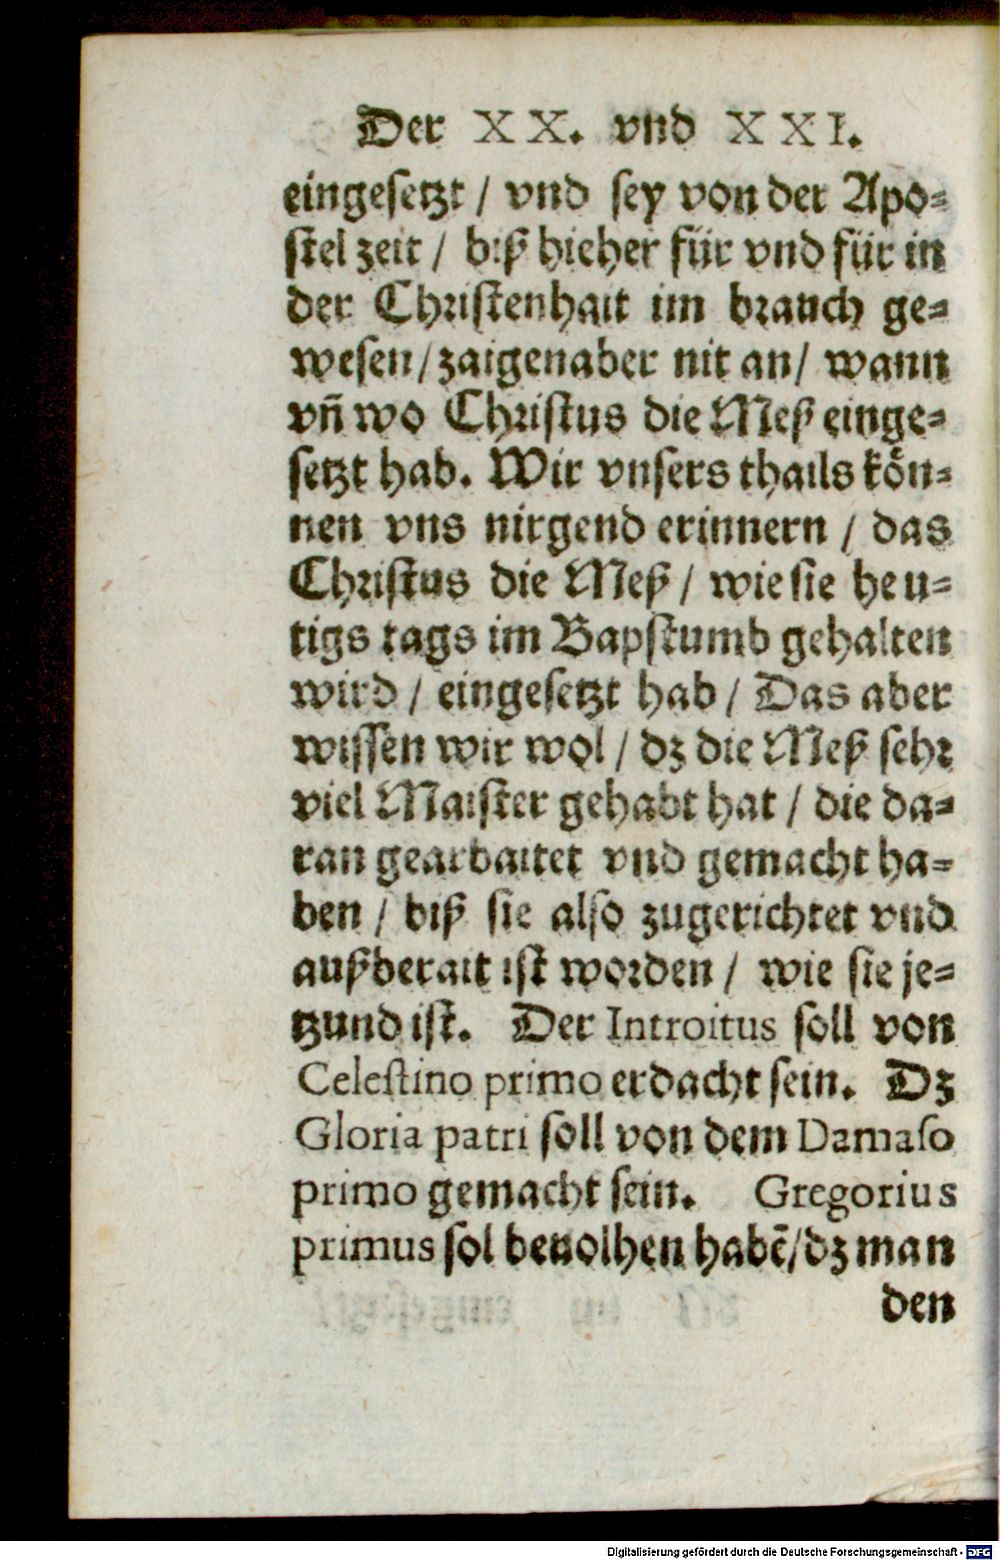 Der XX. vnd XXI.
eingesetzt / vnd sey von der Apo⸗
stel zeit / biß hieher für vnd für in
der Christenhait im brauch ge⸗
wesen / zaigen aber nit an / wann
vñ wo Christus die Meß einge⸗
setzt hab. Wir vnsers thails koͤn⸗
nen vns nirgend erinnern / das
Christus die Meß / wie sie heu⸗
tigs tags im Bapstumb gehalten
wird / eingesetzt hab / Das aber
wissen wir wol / dz die Meß sehr
viel Maister gehabt hat / die da⸗
ran gearbaitet vnd gemacht ha⸗
ben / biß sie also zugerichtet vnd
außberait ist worden / wie sie je⸗
tzund ist. Der Introitus soll von
Celestino primo erdacht sein. Dz
Gloria patri soll von dem Damaso
primo gemacht sein. Gregorius
primus sol beuolhen habē / dz man
den
Digitalisierung gefördert durch die Deutsche Forschungsgemeinschaft - DFG